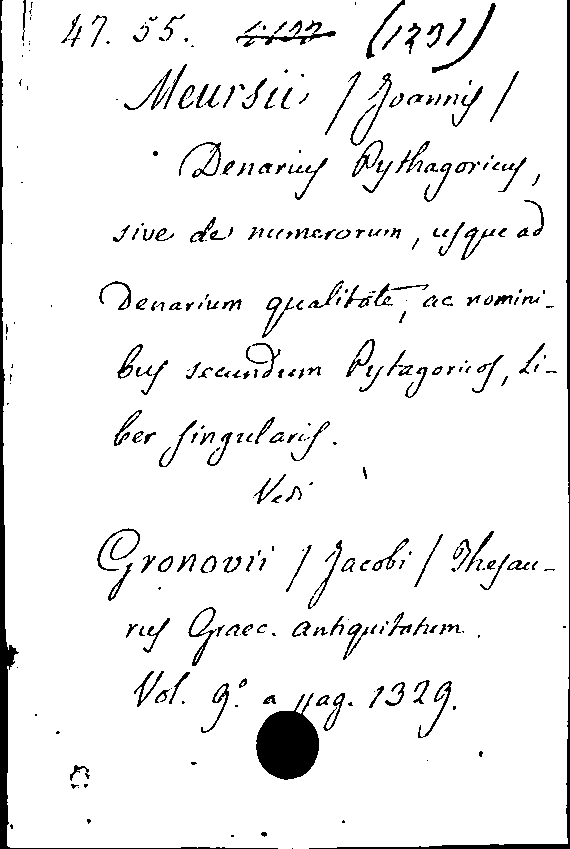 47. 55. (1231)
Meursii / Joannis /
Denarius Pythagoricus,
sive de numerorum, usque ad
Denarium qualitate, ac nomini-
bus secundum Pytagoricos, Li-
ber singularis.
Vedi
Gronovii / Jacobi / Thesau-
rus Graec. antiquitatum.
Vol. 9.º a pag. 1329.